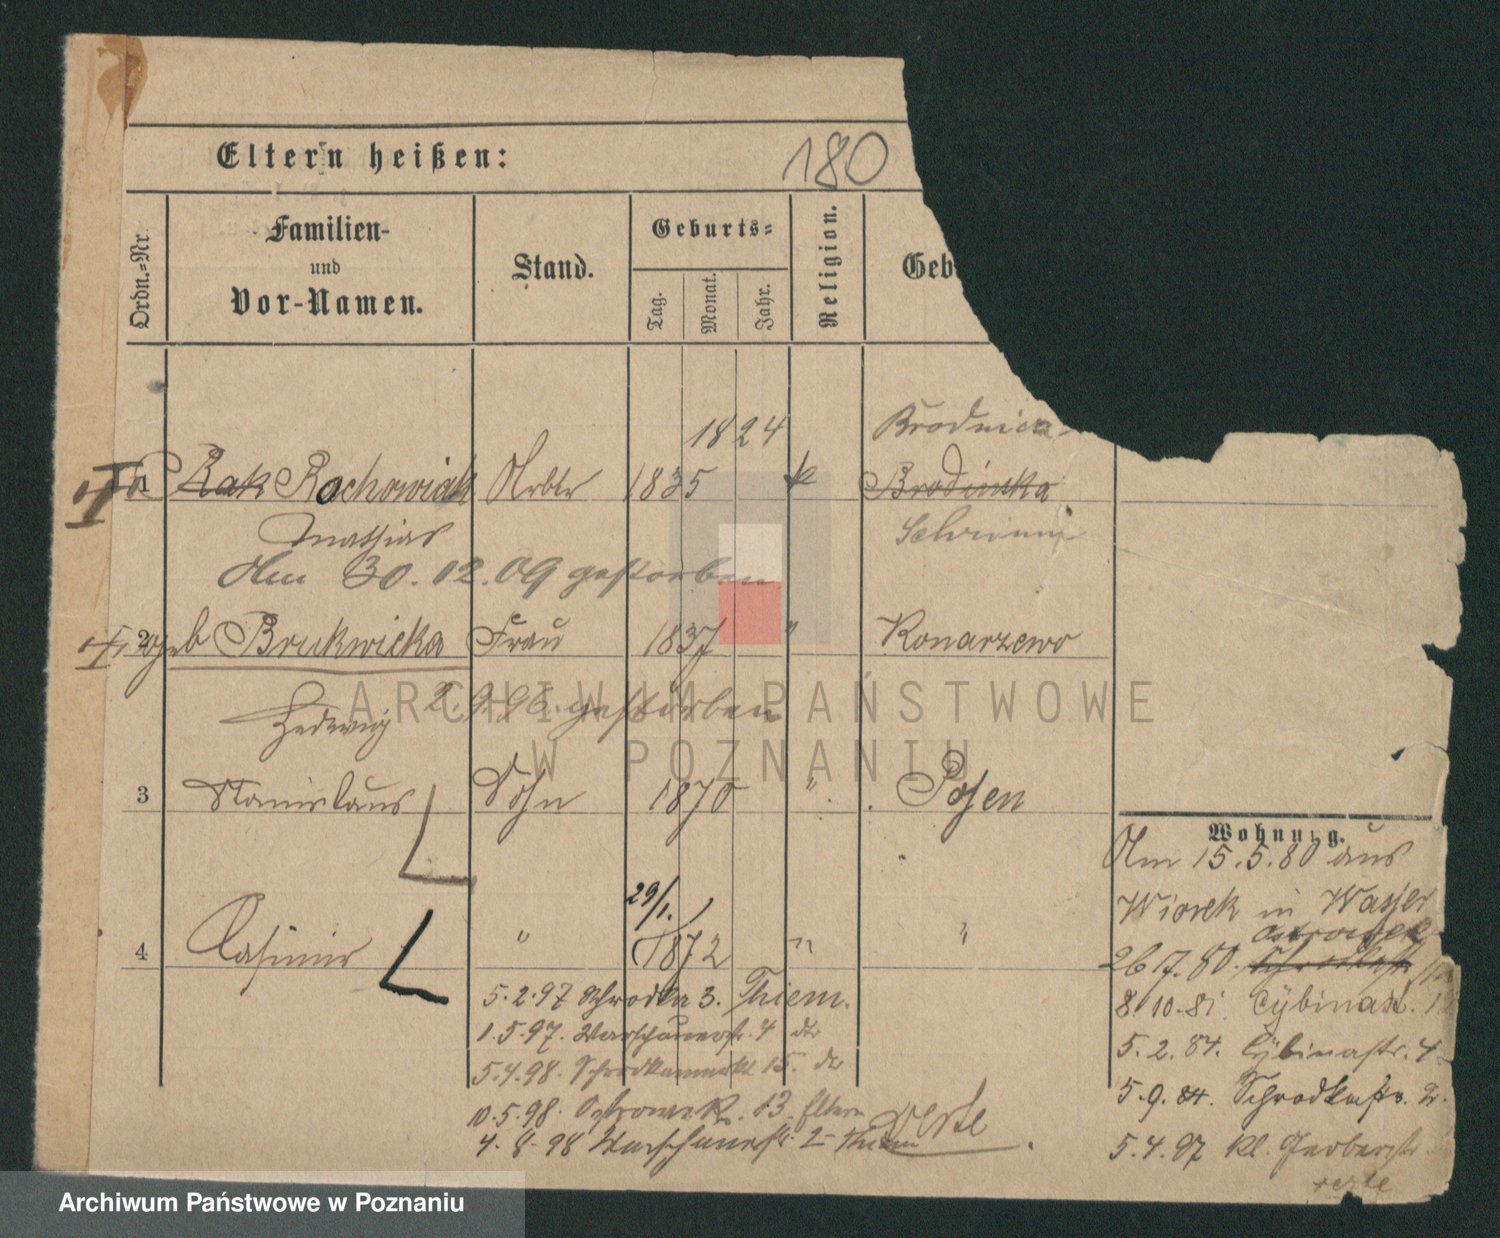 Eltern heißen:
180
Ordn.=Nr.
Familien-
und
Vor-Namen.
Stand.
Geburts=
Tag.
Monat.
Jahr.
Religion.
Geb
1824
Brodnica
1
Rak Rachowiak
Arbtr
1835
k
Brodinska
Mathias
Schrimm
Am 30.12.09 gestorben
2
geb Brukwicka
Frau
1837
"
Konarzewo
Hedwig
2.9.96. gestorben
3
Stanislaus
Sohn
1870
"
Posen
Wohnung.
Am 15.5.80 aus
Wiorek in Wasser
29/1.
Ostrowek
4
Casimir
"
1872
"
"
26/7.80. Schrodkastr
5.2.97 Schrodka 3. Thiem.
8.10.81. Cybinastr. 1
1.5.97. Warschauerstr. 4 dtr
5.2.84. Cybinastr. 4
5.4.98. Schrodkamarkt 15. dr
5.9.84. Schrodkastr. 2.
10.5.98. Ostrowek. 13. Eltern
verte
4.8.98 Warschauerstr. 2
5.4.97 Kl. Gerberstr
verte
ARCHIWUM PAŃSTWOWE
W POZNANIU
Archiwum Państwowe w Poznaniu